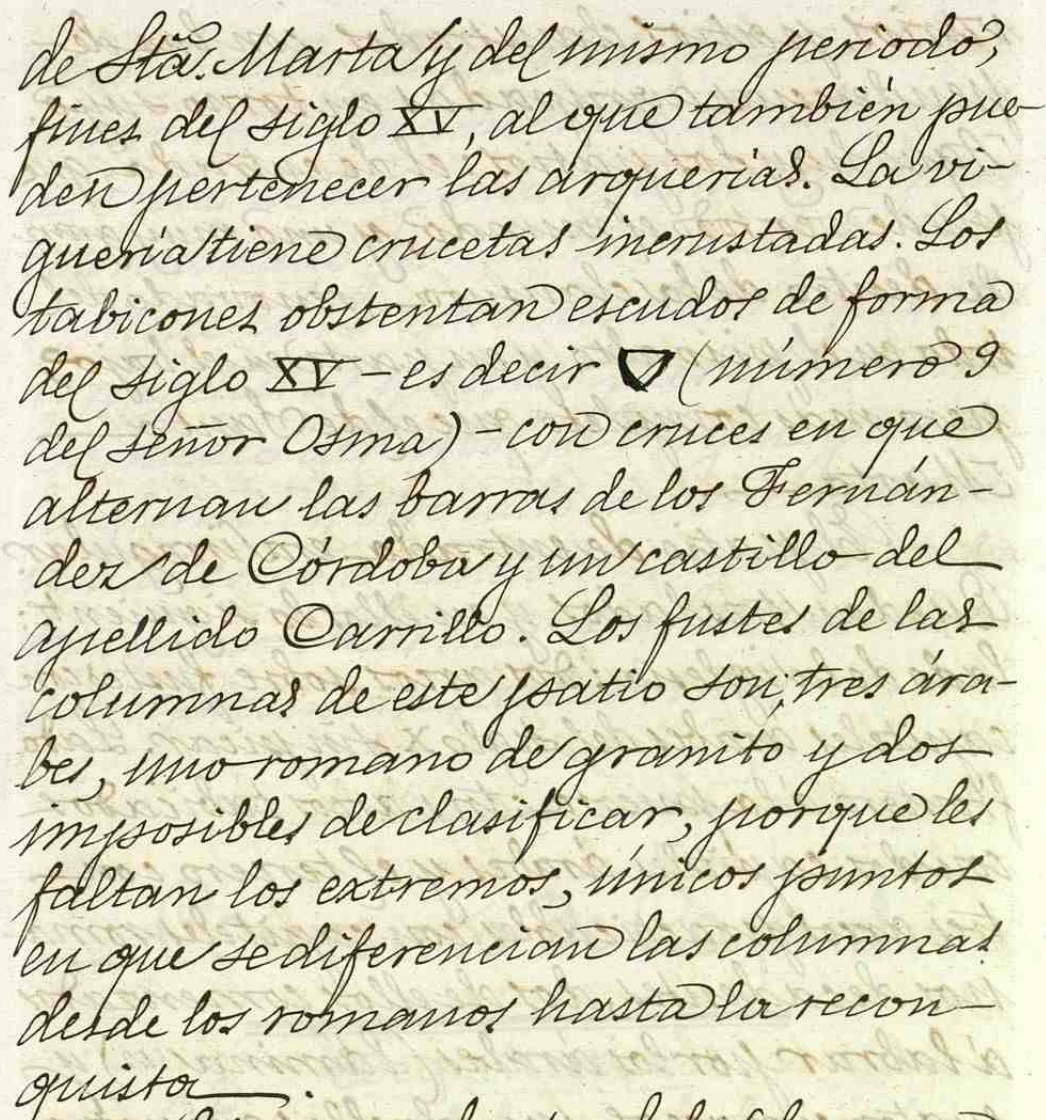 de Stª. Marta y del mismo periodo,
fines del siglo XV, al que también pue-
den pertenecer las arquerías. La vi-
guería tiene crucetas incrustadas. Los
tabicones obstentan escudos de forma
del siglo XV - es decir (número 9
del señor Osma) - con cruces en que
alternan las barras de los Fernán-
dez de Córdoba y un castillo del
apellido Carrillo. Los fustes de las
columnas de este patio son, tres ára-
bes, uno romano de granito y dos
imposibles de clasificar, porque les
faltan los extremos, únicos puntos
en que se diferencian las columnas
desde los romanos hasta la recon-
quista.